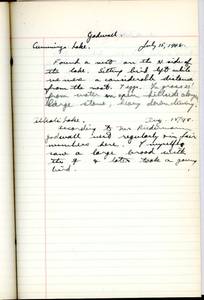 Gadwall
Cummings Lake. July 15, 1948.
Found a nest on the N side of
the lake. Sitting bird left while
we were a considerable distance
from the nest. 7 eggs. In grass 25'
from water on open hillside along
large stone, heavy down lining.
Whale Lake, Aug. 15/48.
According to Mr.
gadwall nest regularly in fair
numbers here. I myself
saw a large brood with
the ♀ & later took a young
bird.